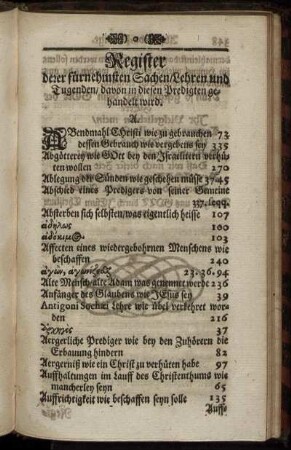 Register
derer fürnehmsten Sachen/Lehren und
Tugenden/ davon in diesen Predigten ge-
handelt wird.
A.
ABendmahl Christi wie zu gebrauchen 73
dessen Gebrauch wie vergebens sey 335
Abgötterey wie GOtt bey den Israeliten verhü-
ten wollen 170
Ablegung der Sünden wie geschehen müsse 37.45
Abschied eines Predigers von seiner Gemeine
357. seqq.
Absterben sich selbsten/ was eigentlich heisse 107
ἀδήλως 101
ἀδόκιμος 103
Affecten eines wiedergebohrnen Menschens wie
beschaffen 240
23.36.94
Alte Mensch/alte Adam was genennet werde 136
Anfänger des Glaubens wie JEsus sey 39
Antigoni Sochæi Lehre wie übel verkehret wor-
den 216
37
Aergerliche Prediger wie bey den Zuhörern die
Erbauung hindern 82
Aergerniß wie ein Christ zu verhüten habe 97
Auffhaltungen im Lauff des Christenthums wie
mancherley seyn 65
Auffrichtigkeit wie beschaffen seyn solle 135
Auffs